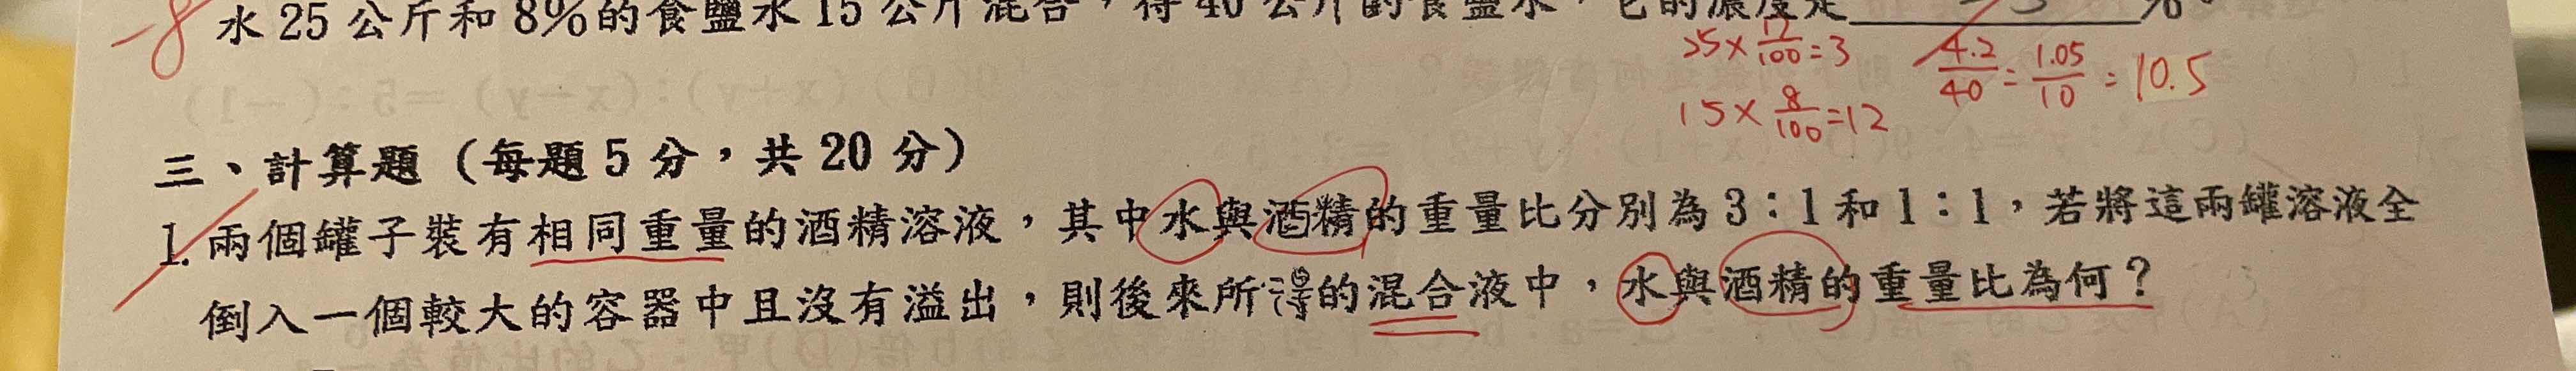 水 25 公斤和 8%的食鹽水 15 公斤混合，得 40 公斤的食鹽水，它的濃度是 %
-8
25×12/100=3
4.2/40=1.05/10=10.5
15×8/100=12
三、計算題（每題 5 分，共 20 分）
1. 兩個罐子裝有相同重量的酒精溶液，其中水與酒精的重量比分別為 3：1 和 1：1，若將這兩罐溶液全
倒入一個較大的容器中且沒有溢出，則後來所得的混合液中，水與酒精的重量比為何？